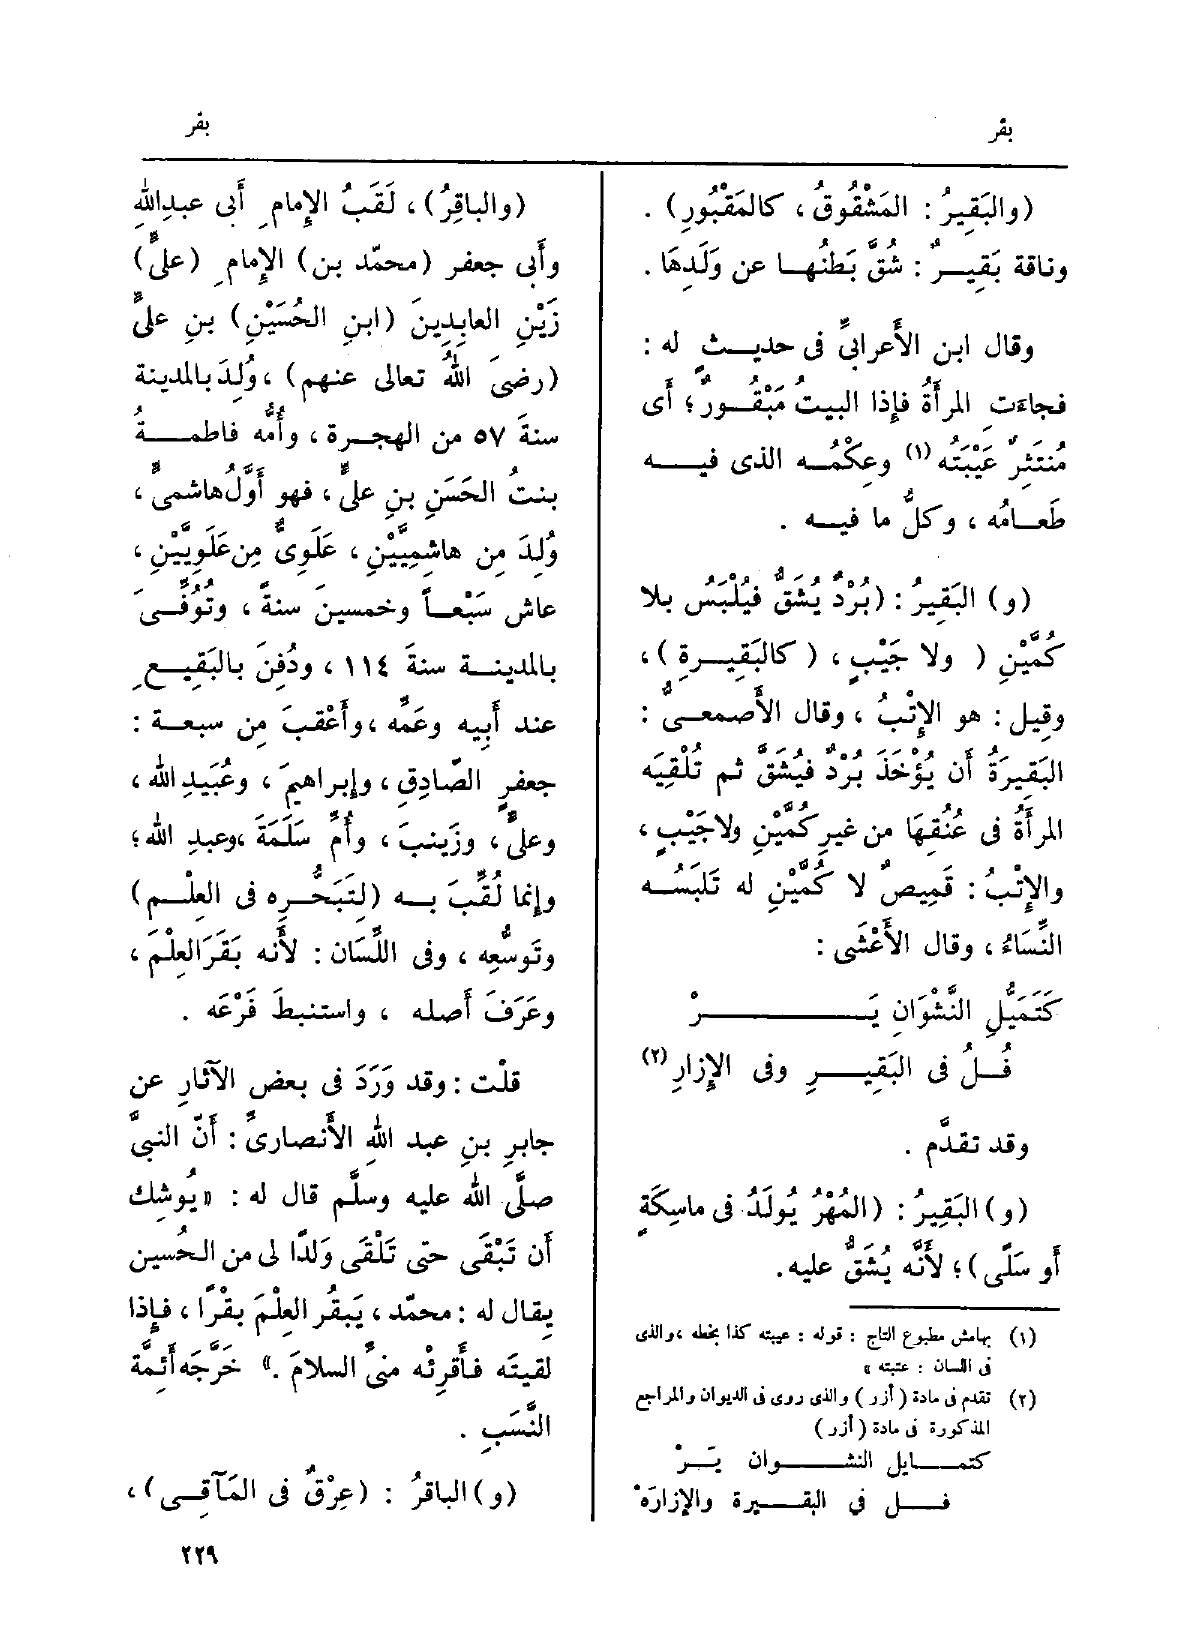 بقر
بقر
(والبَقِيرُ : المَشْقُوقُ ، كالمَقْبُورِ) .
وناقة بَقِيرٌ : شُقَّ بَطنُهـا عن وَلَدِهَا .
وقال ابن الأَعرابىِّ فى حديـثٍ له :
فجاءَت المرأَةُ فإذا البيتُ مَبْقُورٌ ؛ أَى
مُنتَثِرٌ عَيْبَتُه (١) وعِكْمُـه الذى فيـه
طَعـامُه ، وكلُّ ما فيـه .
(و) البَقِيرُ : (بُرْدٌ يُشَقُّ فيُلْبَسُ بلا
كُمَّيْنِ ( ولا جَيْبٍ ، ( كالبَقِيـرةِ ) ،
وقِيل : هو الإِتْبُ ، وقال الأَصمعىُّ :
البَقِيرَةُ أَن يُؤْخَذَ بُرْدٌ فيُشَقَّ ثم تُلْقِيَه
المرأَةُ فى عُنُقِهَا من غيرِ كُمَّيْنِ ولاجَيْبٍ ،
والإِتْبُ : قَمِيصٌ لا كُمَّيْنِ له تَلبَسُـه
النِّسَاءُ ، وقال الأَعْشَى :
كَتَمَيُّلِ النَّشْوَانِ يَـــــرْ
فُـلُ فى البَقِيـرِ وفى الإِزارِ (٢)
وقد تقدَّم .
(و) البَقِيرُ : (المُهْرُ يُولَدُ فى ماسِكَةٍ
أَو سَلًى) ؛ لأَنَّه يُشَقُّ عليه .
(١) بهامش مطبوع التاج : قوله : عيبته كذا بخطه ، والذى
فى اللسان : عتبته »
(٢) تقدم فى مادة ( أزر ) والذى روى فى الديوان والمراجع
المذكورة فى مادة ( أزر )
كتمـايل النشـوان يَـرْ
فـل فى البقـيرة والإزارَهْ
(والباقِرُ) ، لَقَبُ الإِمامِ أَبى عبدِاللهِ
وأَبى جعفر (محمّد بن) الإِمامِ (علىٍّ)
زَيْنِ العابِدِينَ (ابنِ الحُسَيْنِ) بنِ علىٍّ
(رضىَ اللهُ تعالى عنهم) ، وُلِدَ بالمدينة
سنةَ ٥٧ من الهجـرة ، وأُمُّه فاطمـةُ
بنتُ الحَسَنِ بنِ علىٍّ ، فهو أَوَّلُ هاشمىٍّ ،
وُلِدَ مِن هاشمِيَّيْنِ ، عَلَوِىٌّ مِن عَلَوِيَّيْنِ ،
عاش سَبْعـاً وخمسينَ سنةً ، وتُوُفِّـىَ
بالمدينـة سنةَ ١١٤ ، ودُفِنَ بالبَقِيـعِ
عند أَبيه وعَمِّه ، وأَعْقبَ مِن سبعـة :
جعفرٍ الصّادِقِ ، وإِبراهيمَ ، وعُبَيدِ الله ،
وعلىٍّ ، وزَينبَ ، وأُمِّ سَلَمَةَ ، وعبدِ الله ؛
وإِنما لُقِّبَ بـه (لتَبَحُّـرِه فى العِلْـمِ)
وتَوسُّعِه ، وفى اللِّسَان : لأَنه بَقَرَ العِلْمَ ،
وعَرَفَ أَصله ، واستنبطَ فَرْعَه .
قلْت : وقد وَرَدَ فى بعض الآثارِ عن
جابرِ بنِ عبد الله الأَنصارىِّ : أَنّ النبىَّ
صلَّى الله عليه وسلَّم قال له : « يُوشِك
أَن تَبْقَى حتى تَلْقَى وَلَدًا لى من الحُسين
يقال له : محمّد ، يَبقُر العِلْمَ بقْرًا ، فإِذا
لقيتَه فأَقرِئْه منىِّ السلامَ . » خرَّجَه أَئمَّة
النَّسَبِ .
(و) الباقرُ : (عِرْقٌ فى المَآقِـى) ،
٢٢٩